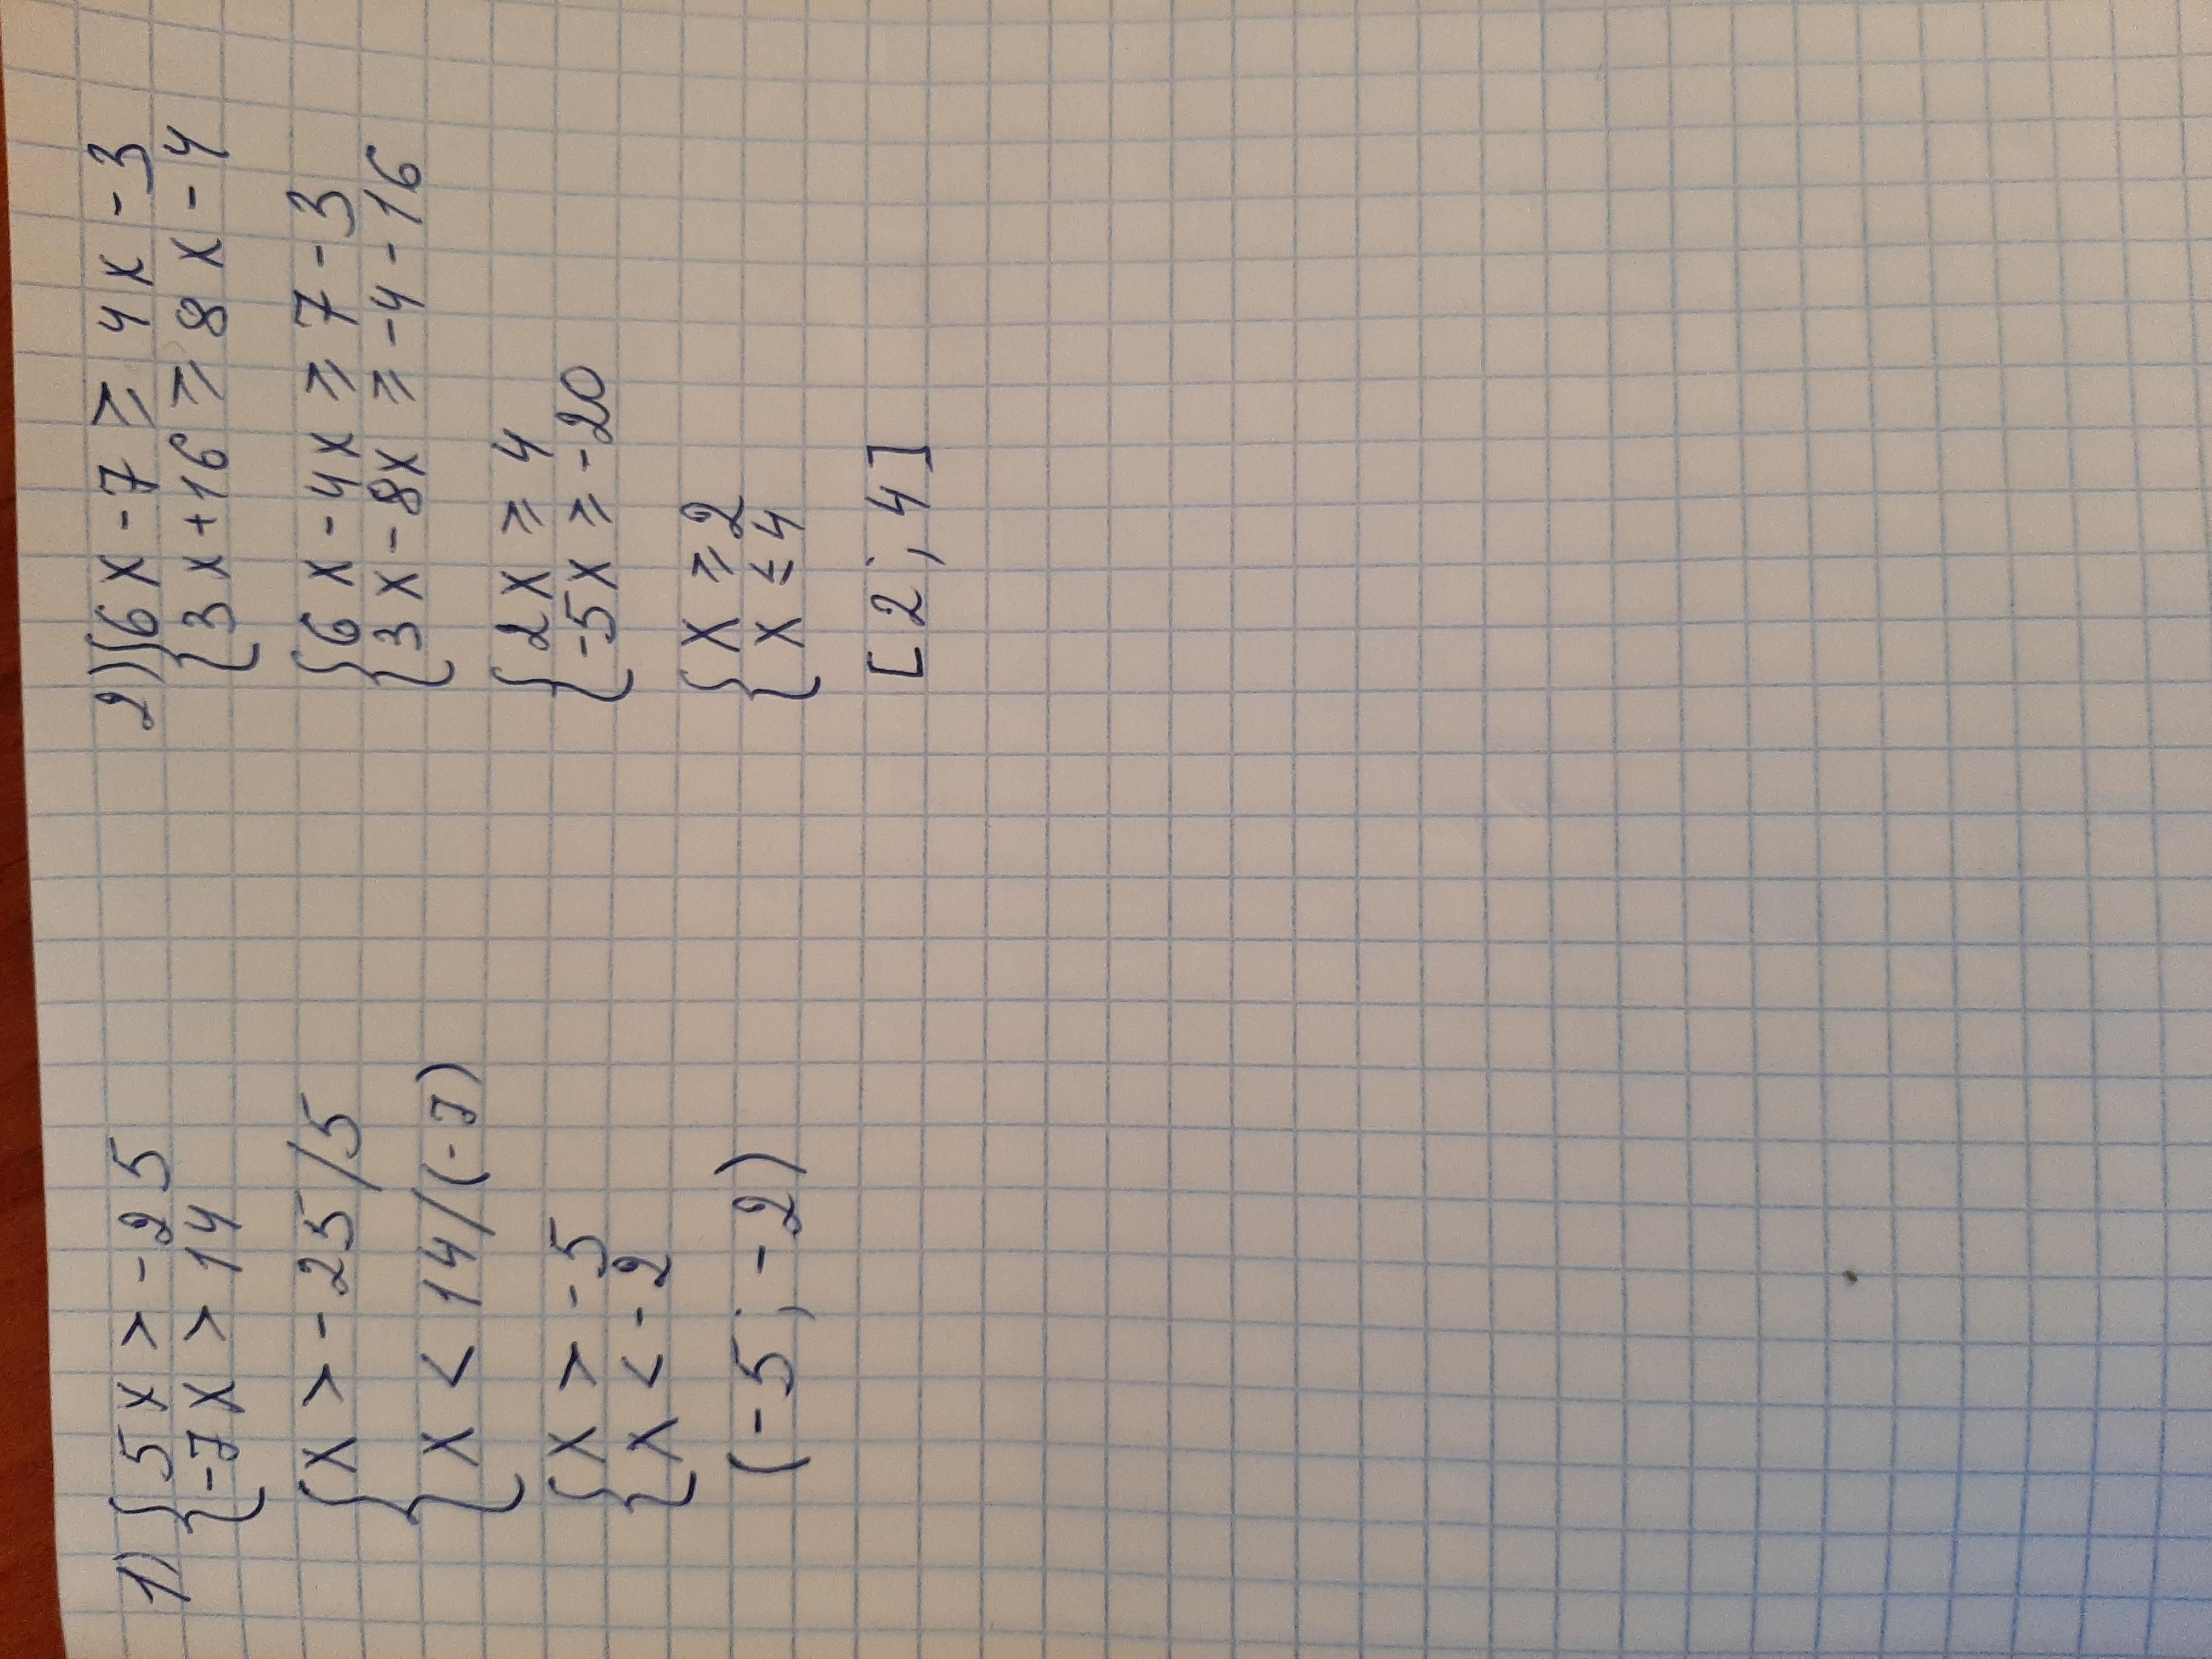 1) { 5x > -25
-7x > 14
{ x > -25/5
x < 14/(-7)
{ x > -5
x < -2
(-5; -2)
2) { 6x - 7 ≥ 4x - 3
3x + 16 ≥ 8x - 4
{ 6x - 4x ≥ 7 - 3
3x - 8x ≥ -4 - 16
{ 2x ≥ 4
-5x ≥ -20
{ x ≥ 2
x ≤ 4
[2; 4]